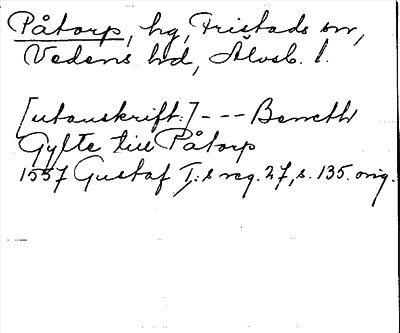 Påtorp, hg, Fristads sn,
Vedens hd, Älvsb. l.
[utanskrift:] --- Benneth
Gylte till Påtorp
1557 Gustaf I:s reg. 27, s. 135. orig.